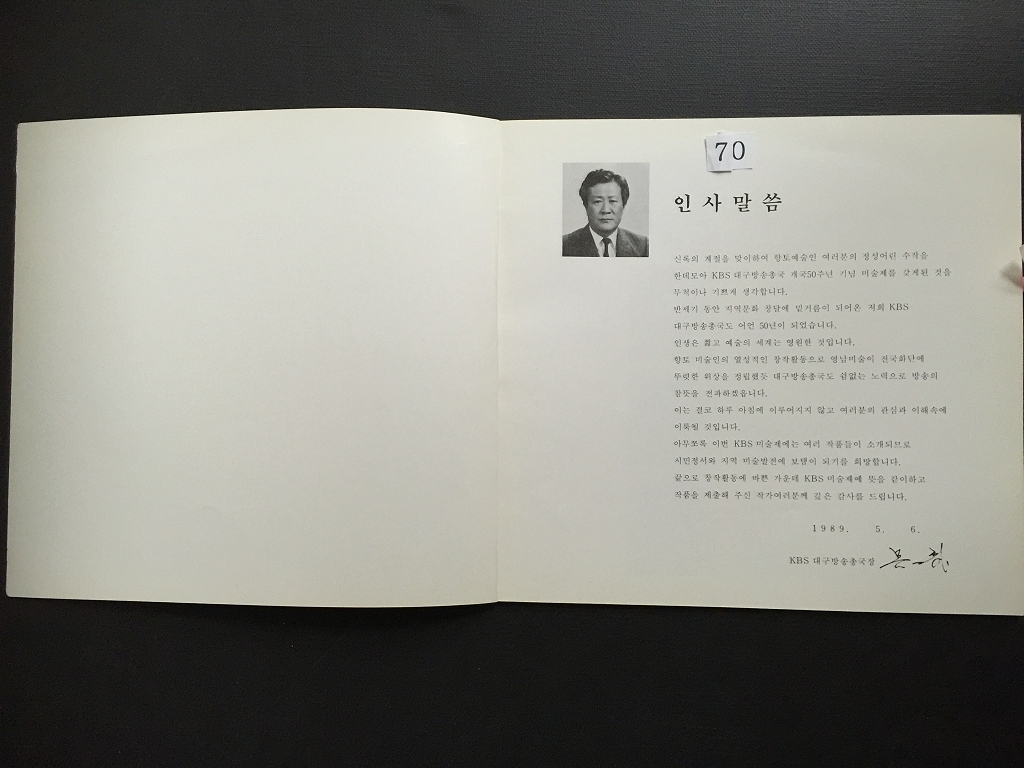 70
인사말씀
신록의 계절을 맞이하여 향토예술인 여러분의 정성어린 수작을
한데모아 KBS 대구방송총국 개국50주년 기념 미술제를 갖게된 것을
무척이나 기쁘게 생각합니다.
반세기 동안 지역문화 창달에 밑거름이 되어온 저희 KBS
대구방송총국도 어언 50년이 되었습니다.
인생은 짧고 예술의 세계는 영원한 것입니다.
향토 미술인의 열성적인 창작활동으로 영남미술이 전국화단에
뚜렷한 위상을 정립했듯 대구방송총국도 쉼없는 노력으로 방송의
참뜻을 전파하겠읍니다.
이는 결코 하루 아침에 이루어지지 않고 여러분의 관심과 이해속에
이룩될 것입니다.
아무쪼록 이번 KBS 미술제에는 여러 작품들이 소개되므로
시민정서와 지역 미술발전에 보탬이 되기를 희망합니다.
끝으로 창작활동에 바쁜 가운데 KBS 미술제에 뜻을 같이하고
작품을 제출해 주신 작가여러분께 깊은 감사를 드립니다.
1989. 5. 6.
KBS 대구방송총국장